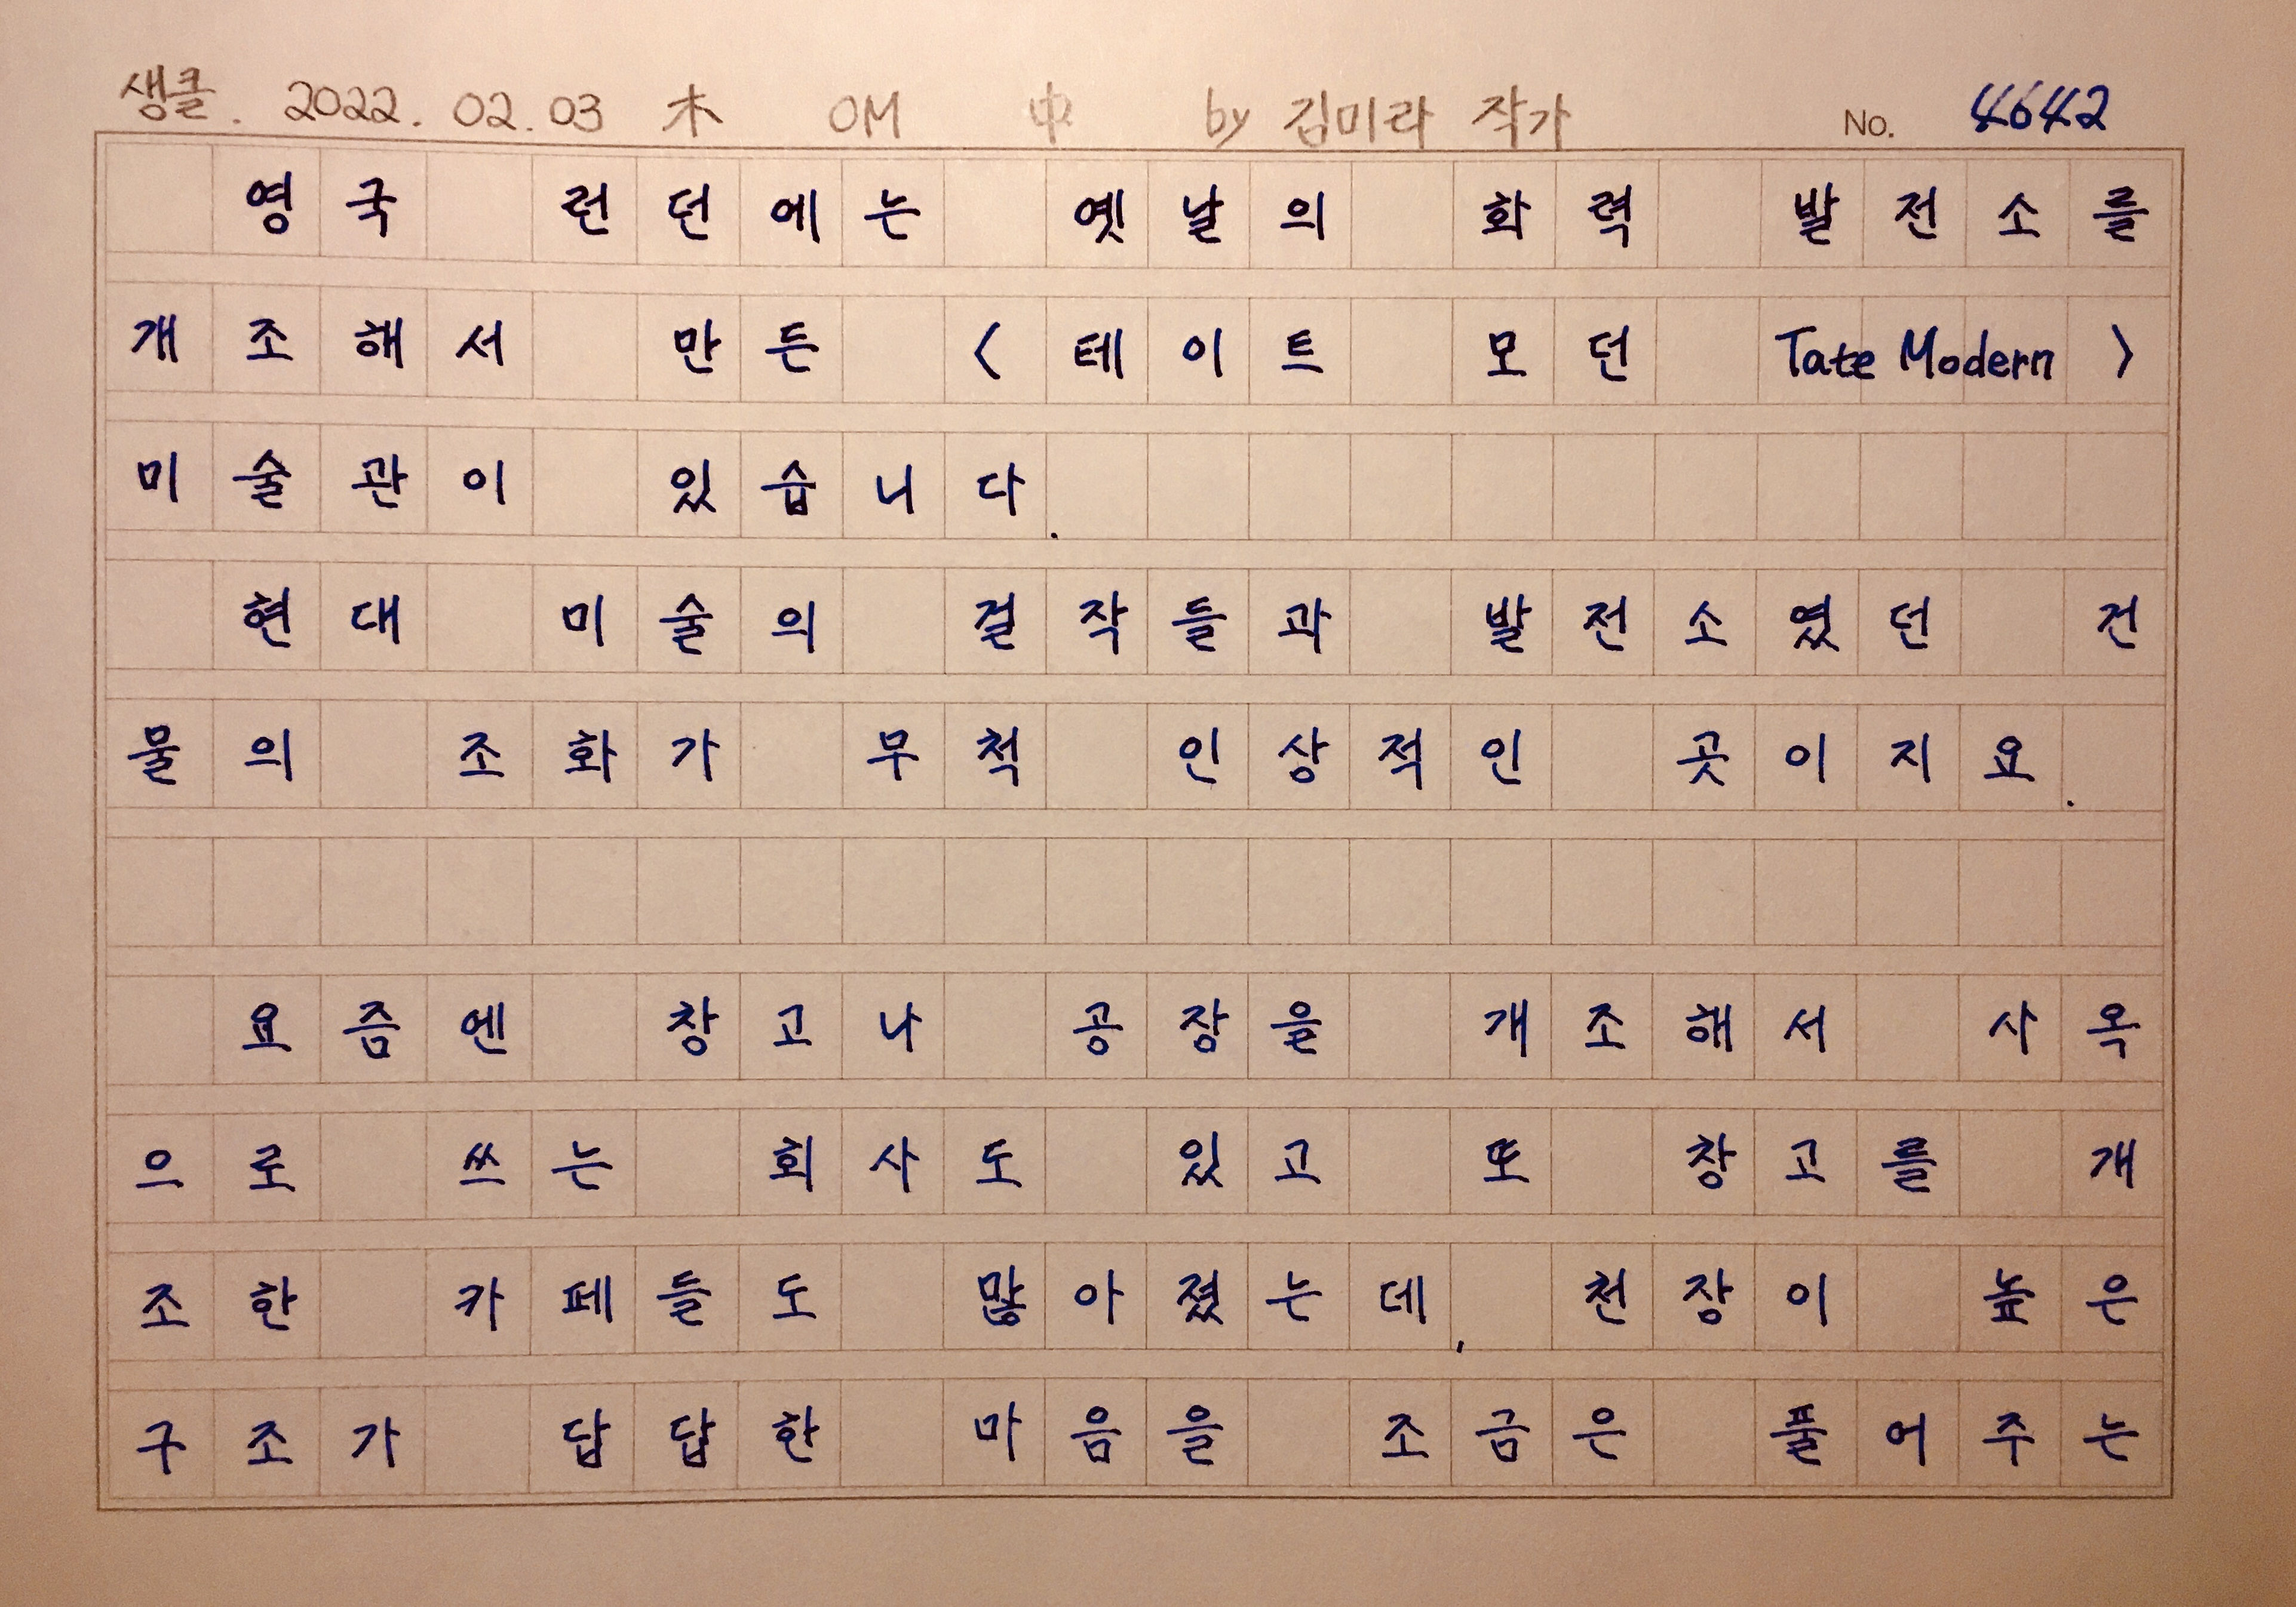 생클. 2022. 02. 03 木 OM 中 by 김미라 작가 No. 4642
영국 런던에는 옛날의 화력 발전소를
개조해서 만든 <테이트 모던 Tate Modern>
미술관이 있습니다.
현대 미술의 걸작들과 발전소였던 건
물의 조화가 무척 인상적인 곳이지요.
요즘엔 창고나 공장을 개조해서 사옥
으로 쓰는 회사도 있고 또 창고를 개
조한 카페들도 많아졌는데, 천장이 높은
구조가 답답한 마음을 조금은 풀어주는